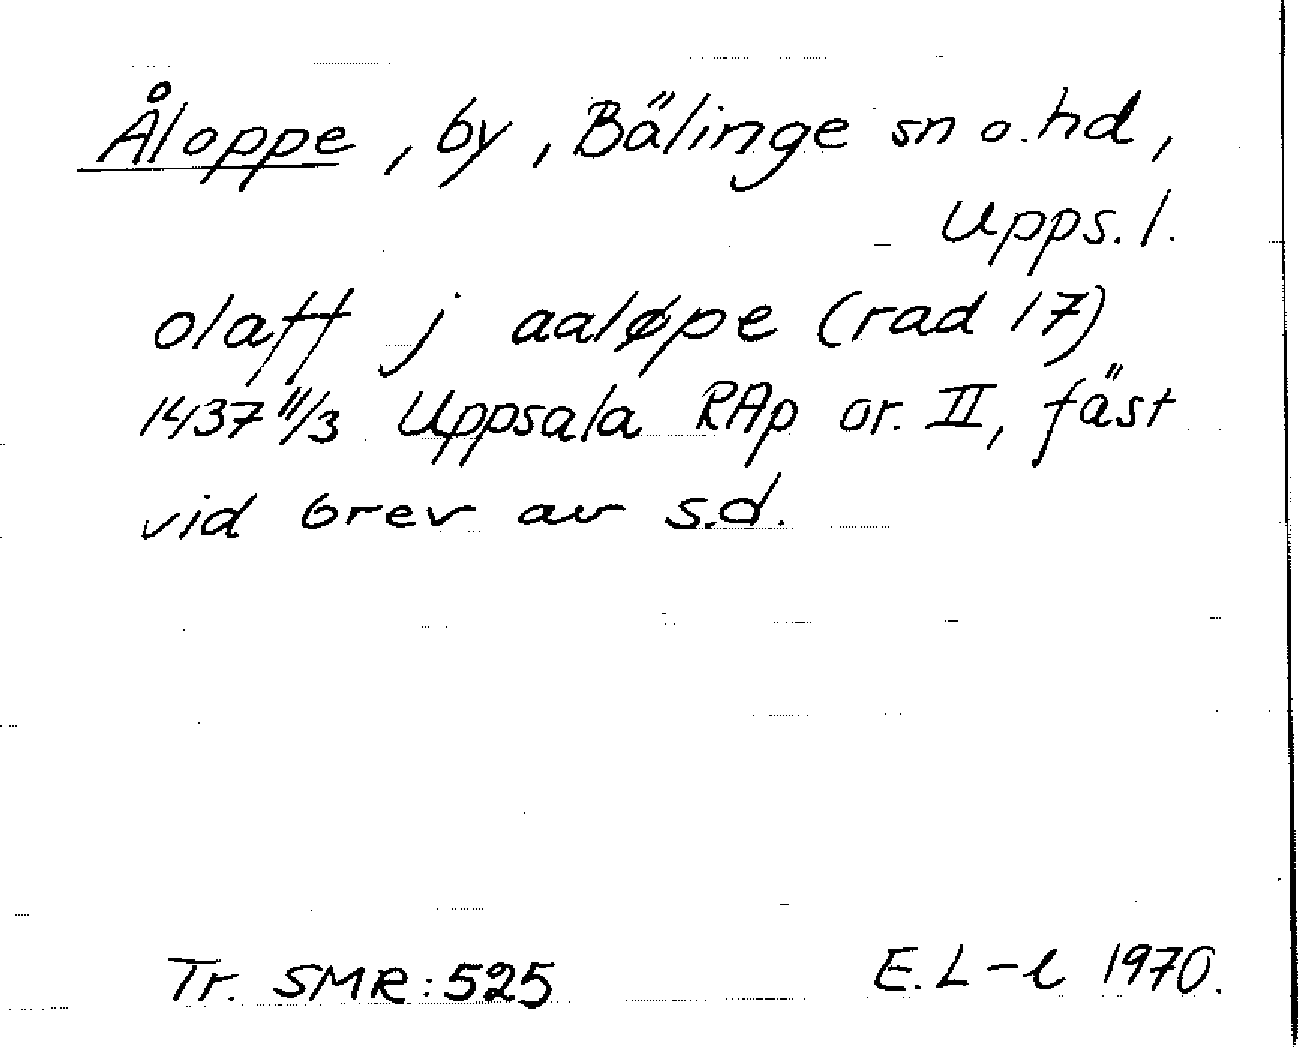 Åloppe, by, Bälinge sn o. hd,
Upps. l.
olaff j aaløpe (rad 17)
1437 11/3 Uppsala RAp or. II, fäst
vid brev av s.d.
Tr. SMR: 525 E. L-l 1970.